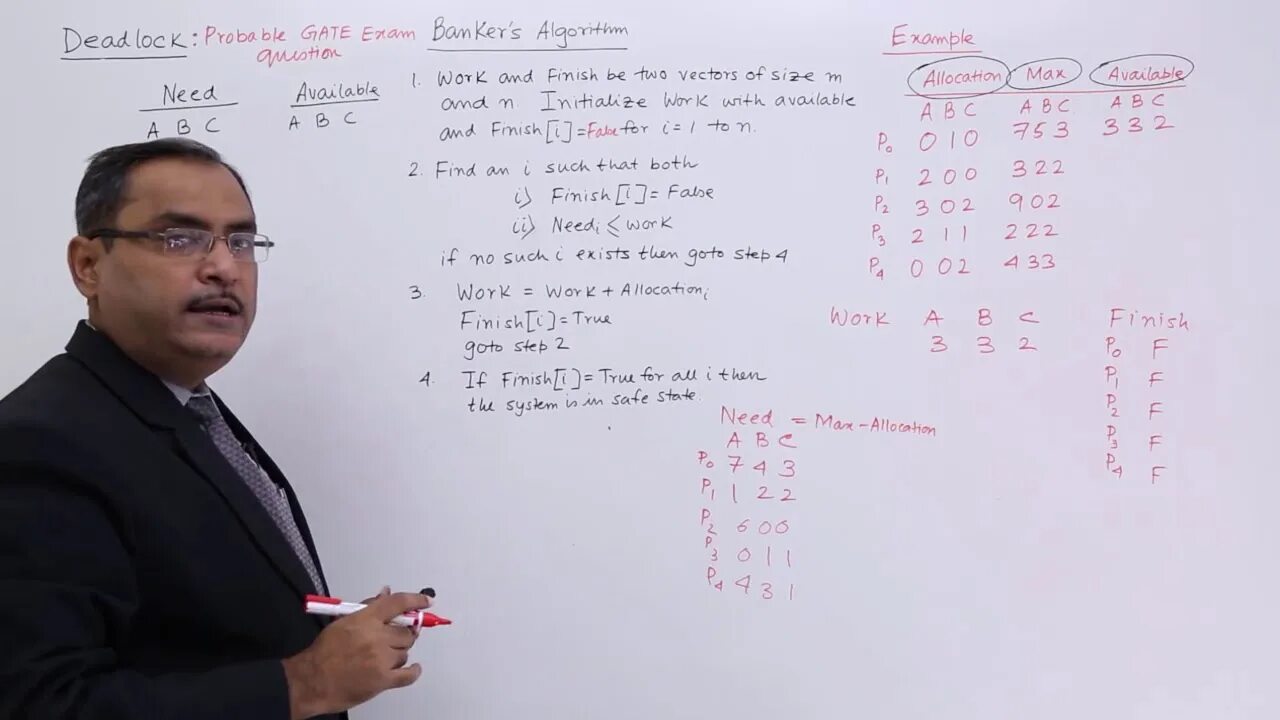 Deadlock: Probable GATE Exam
question
Need Available
A B C A B C
Banker's Algorithm
1. Work and Finish be two vectors of size m
and n. Initialize Work with available
and Finish[i]=False for i=1 to n.
2. Find an i such that both
i) Finish[i]=False
ii) Needi ≤ work
if no such i exists then goto step 4
3. Work = Work + Allocationi
Finish[i]=True
goto step 2
4. If Finish[i]=True for all i then
the system is in safe state.
Example
Allocation Max Available
A B C A B C A B C
P0 0 1 0 7 5 3 3 3 2
P1 2 0 0 3 2 2
P2 3 0 2 9 0 2
P3 2 1 1 2 2 2
P4 0 0 2 4 3 3
Work A B C
3 3 2
Finish
P0 F
P1 F
P2 F
P3 F
P4 F
Need = Max-Allocation
A B C
P0 7 4 3
P1 1 2 2
P2 6 0 0
P3 0 1 1
P4 4 3 1